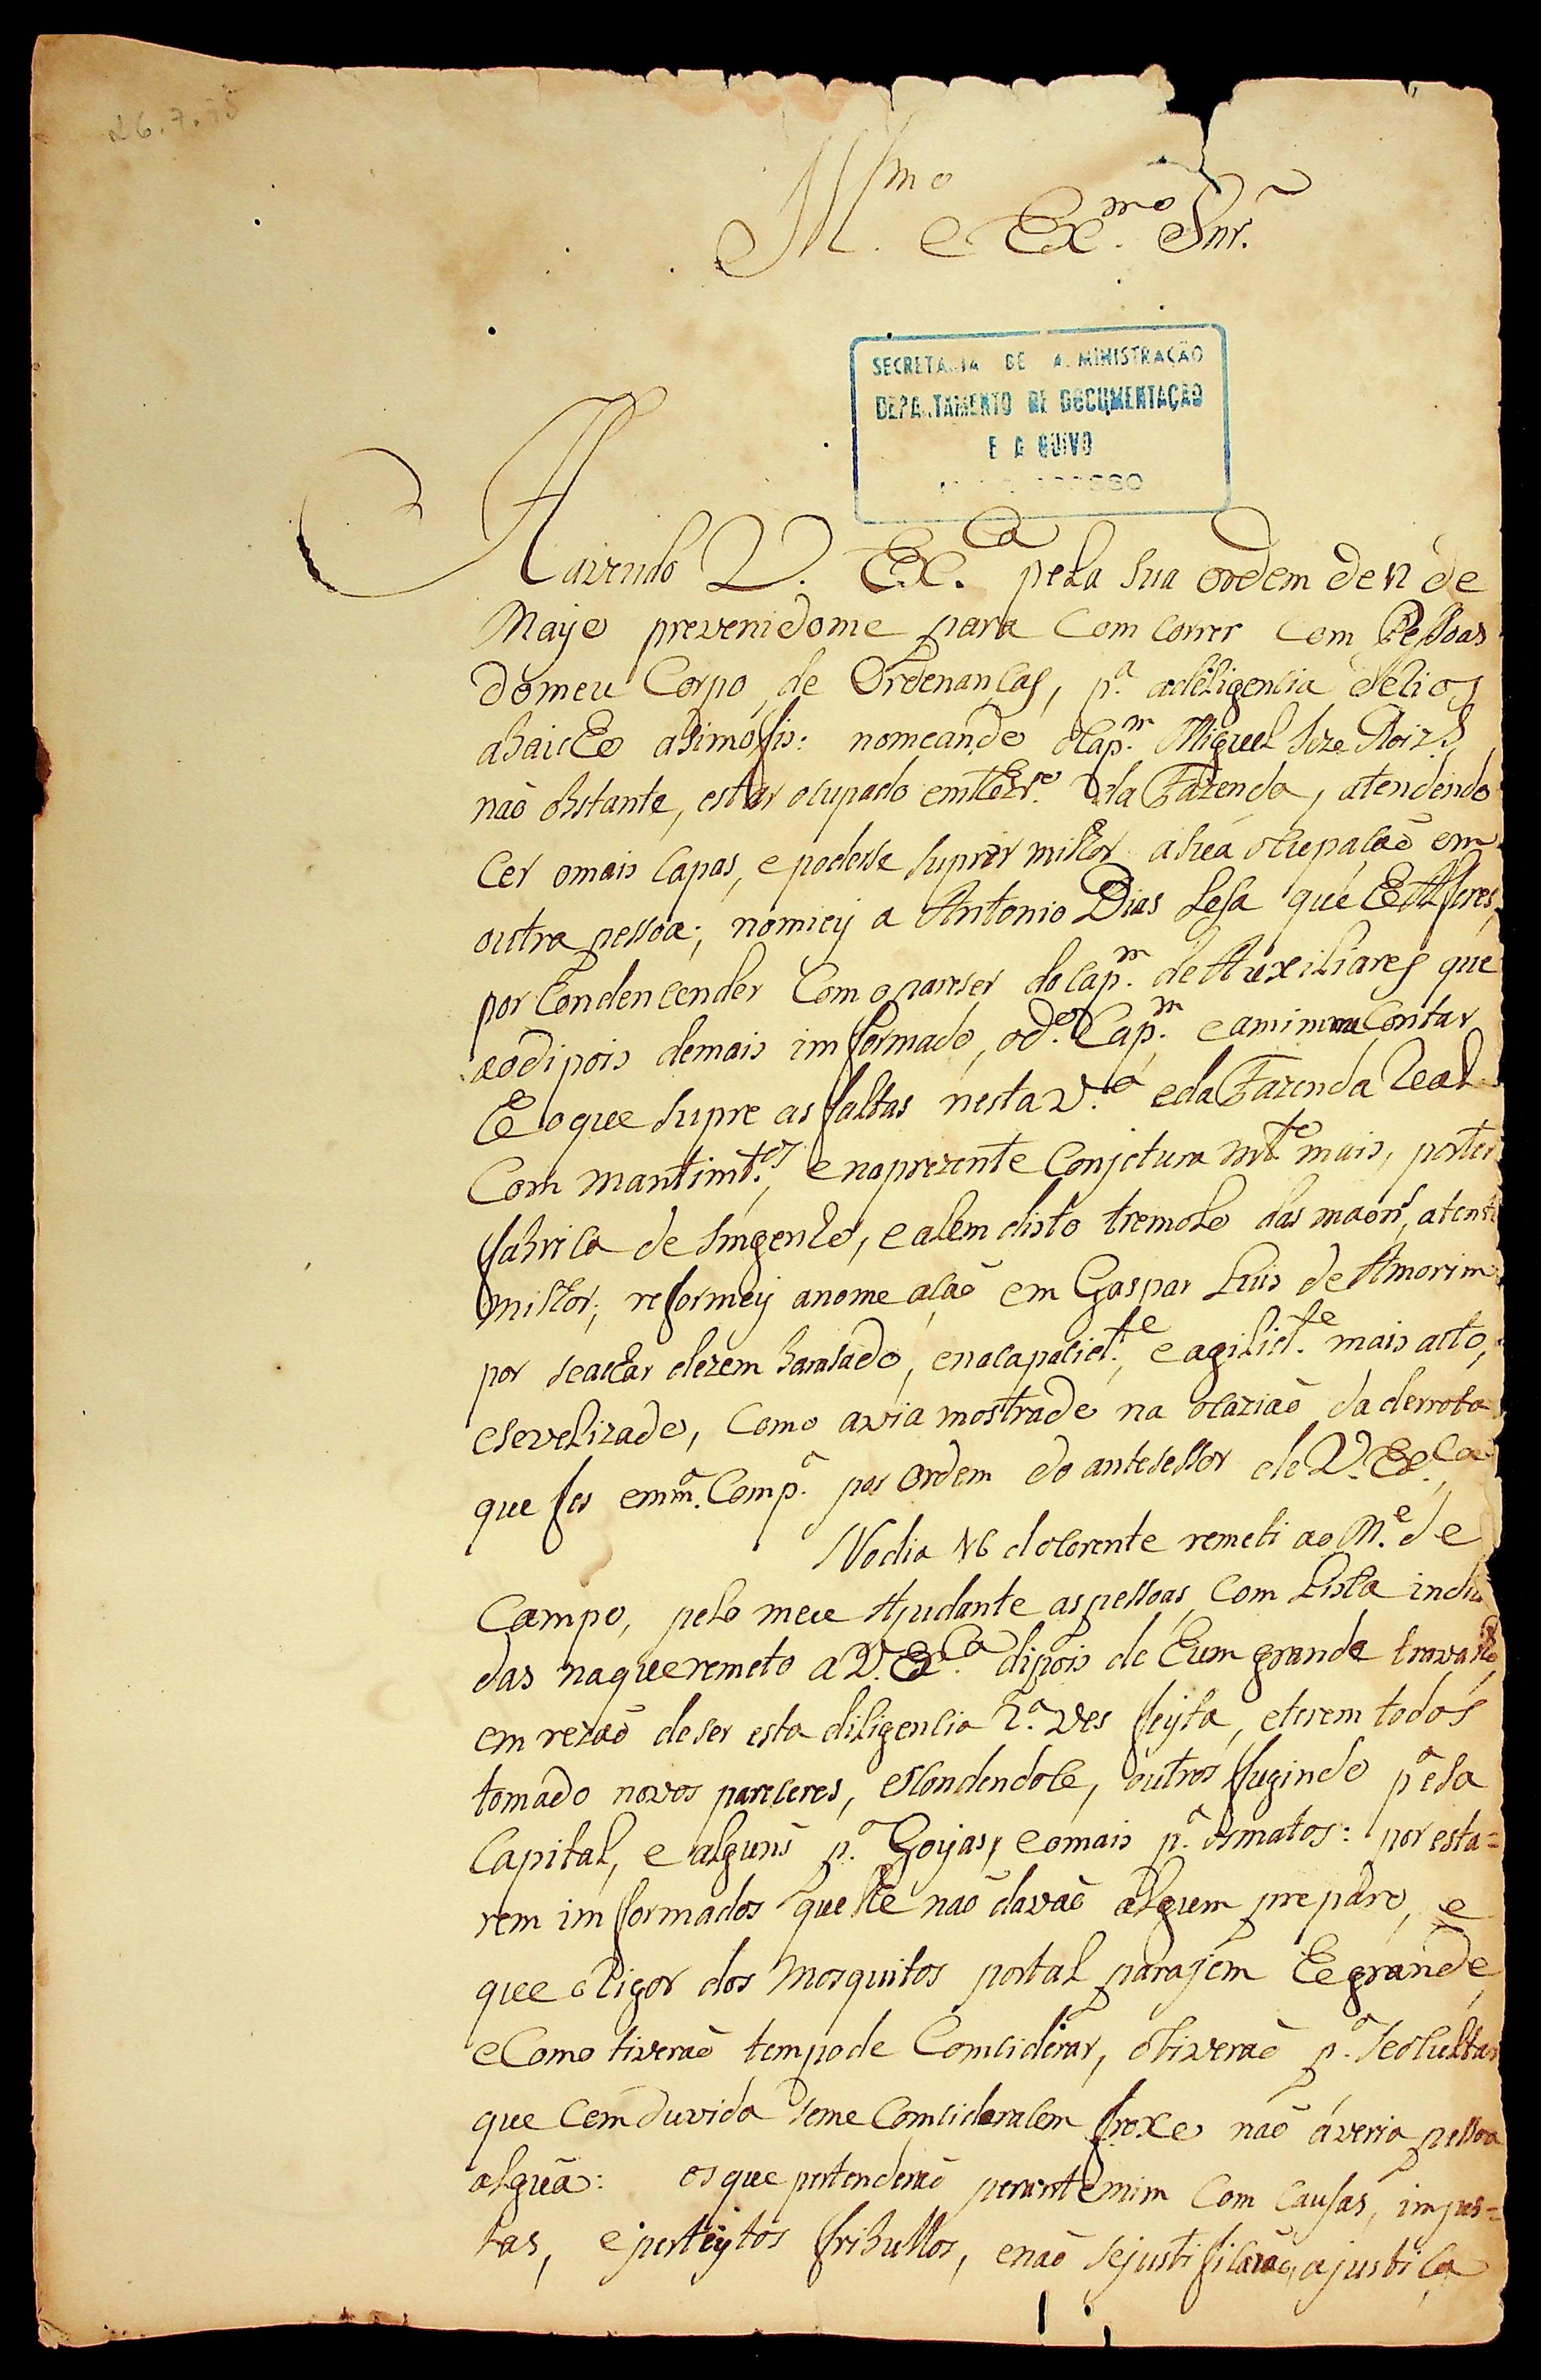 26.7.75
Jll.mo e Ex.mo Snr.
SECRETARIA DE ADMINISTRAÇÃO
DEPARTAMENTO DE DOCUMENTAÇÃO
E ARQUIVO
Havendo V. Ex.ca pela sua ordem de 12 de
Mayo prevenidome para Com correr Com Pessoas
domeu Corpo, de Ordenancas, p.a adeligencia
nomeando oCap.m Miguel Joze Roiz,
não obstante, estar ocupado da Fazenda, atendendo
Cer omais Capas, e poderse suprir milhor asua ocupacaõ em
outra pessoa; nomiey a Antonio Dias Lesa que he Alferes,
por Condencender Com oparser do Cap.m de Auxiliares que
aodipois demais imformado, od.o Cap.m eamim Contar
he oque supre as faltas nesta V.a eda Fazenda Real
Com mantimt.os, enaprezente Conjetura mt.e mais, porter
fabrica de Jmgenho, ealem disto tremolo das maons,
milhor; reformey anomeaçaõ em Gaspar Luis de Amorim
por seachar dezem barasado, enacapacid.e, eagilid.e mais acto,
esevelizado, Como avia mostrado na ocaziaõ da derrota
que fes emm.a Comp.a por ordem do antesessor de V. Ex.ca
Nodia 16 docorente remeti ao M.e de
Campo, pelo meu Ajudante aspessoas, Com Lista inclu
das naqueremeto a V. Ex.ca dipois de hum grande travalho
em rezaõ deser esta diligencia 2.a ves feyta, eterem todos
tomado novos pareceres, escondendoce, outros fugindo p.a esa
Capital, e alguns p.a Goyas, eomais p.a osmatos: por esta=
rem imformados que lhe naõ davaõ algum preparo, e
que oRigor dos Mosquitos portal parajem hegrande,
eComo tiveraõ tempode Comciderar, otiveraõ p.a seocultar
que Cem duvida seme Comcideracem froxo naõ áveria pessoa
alguã: osque pertenderaõ perantemim Com Causas, imjus=
tas, eperteytos fribullos, enaõ sejustificaraõ, ajustica